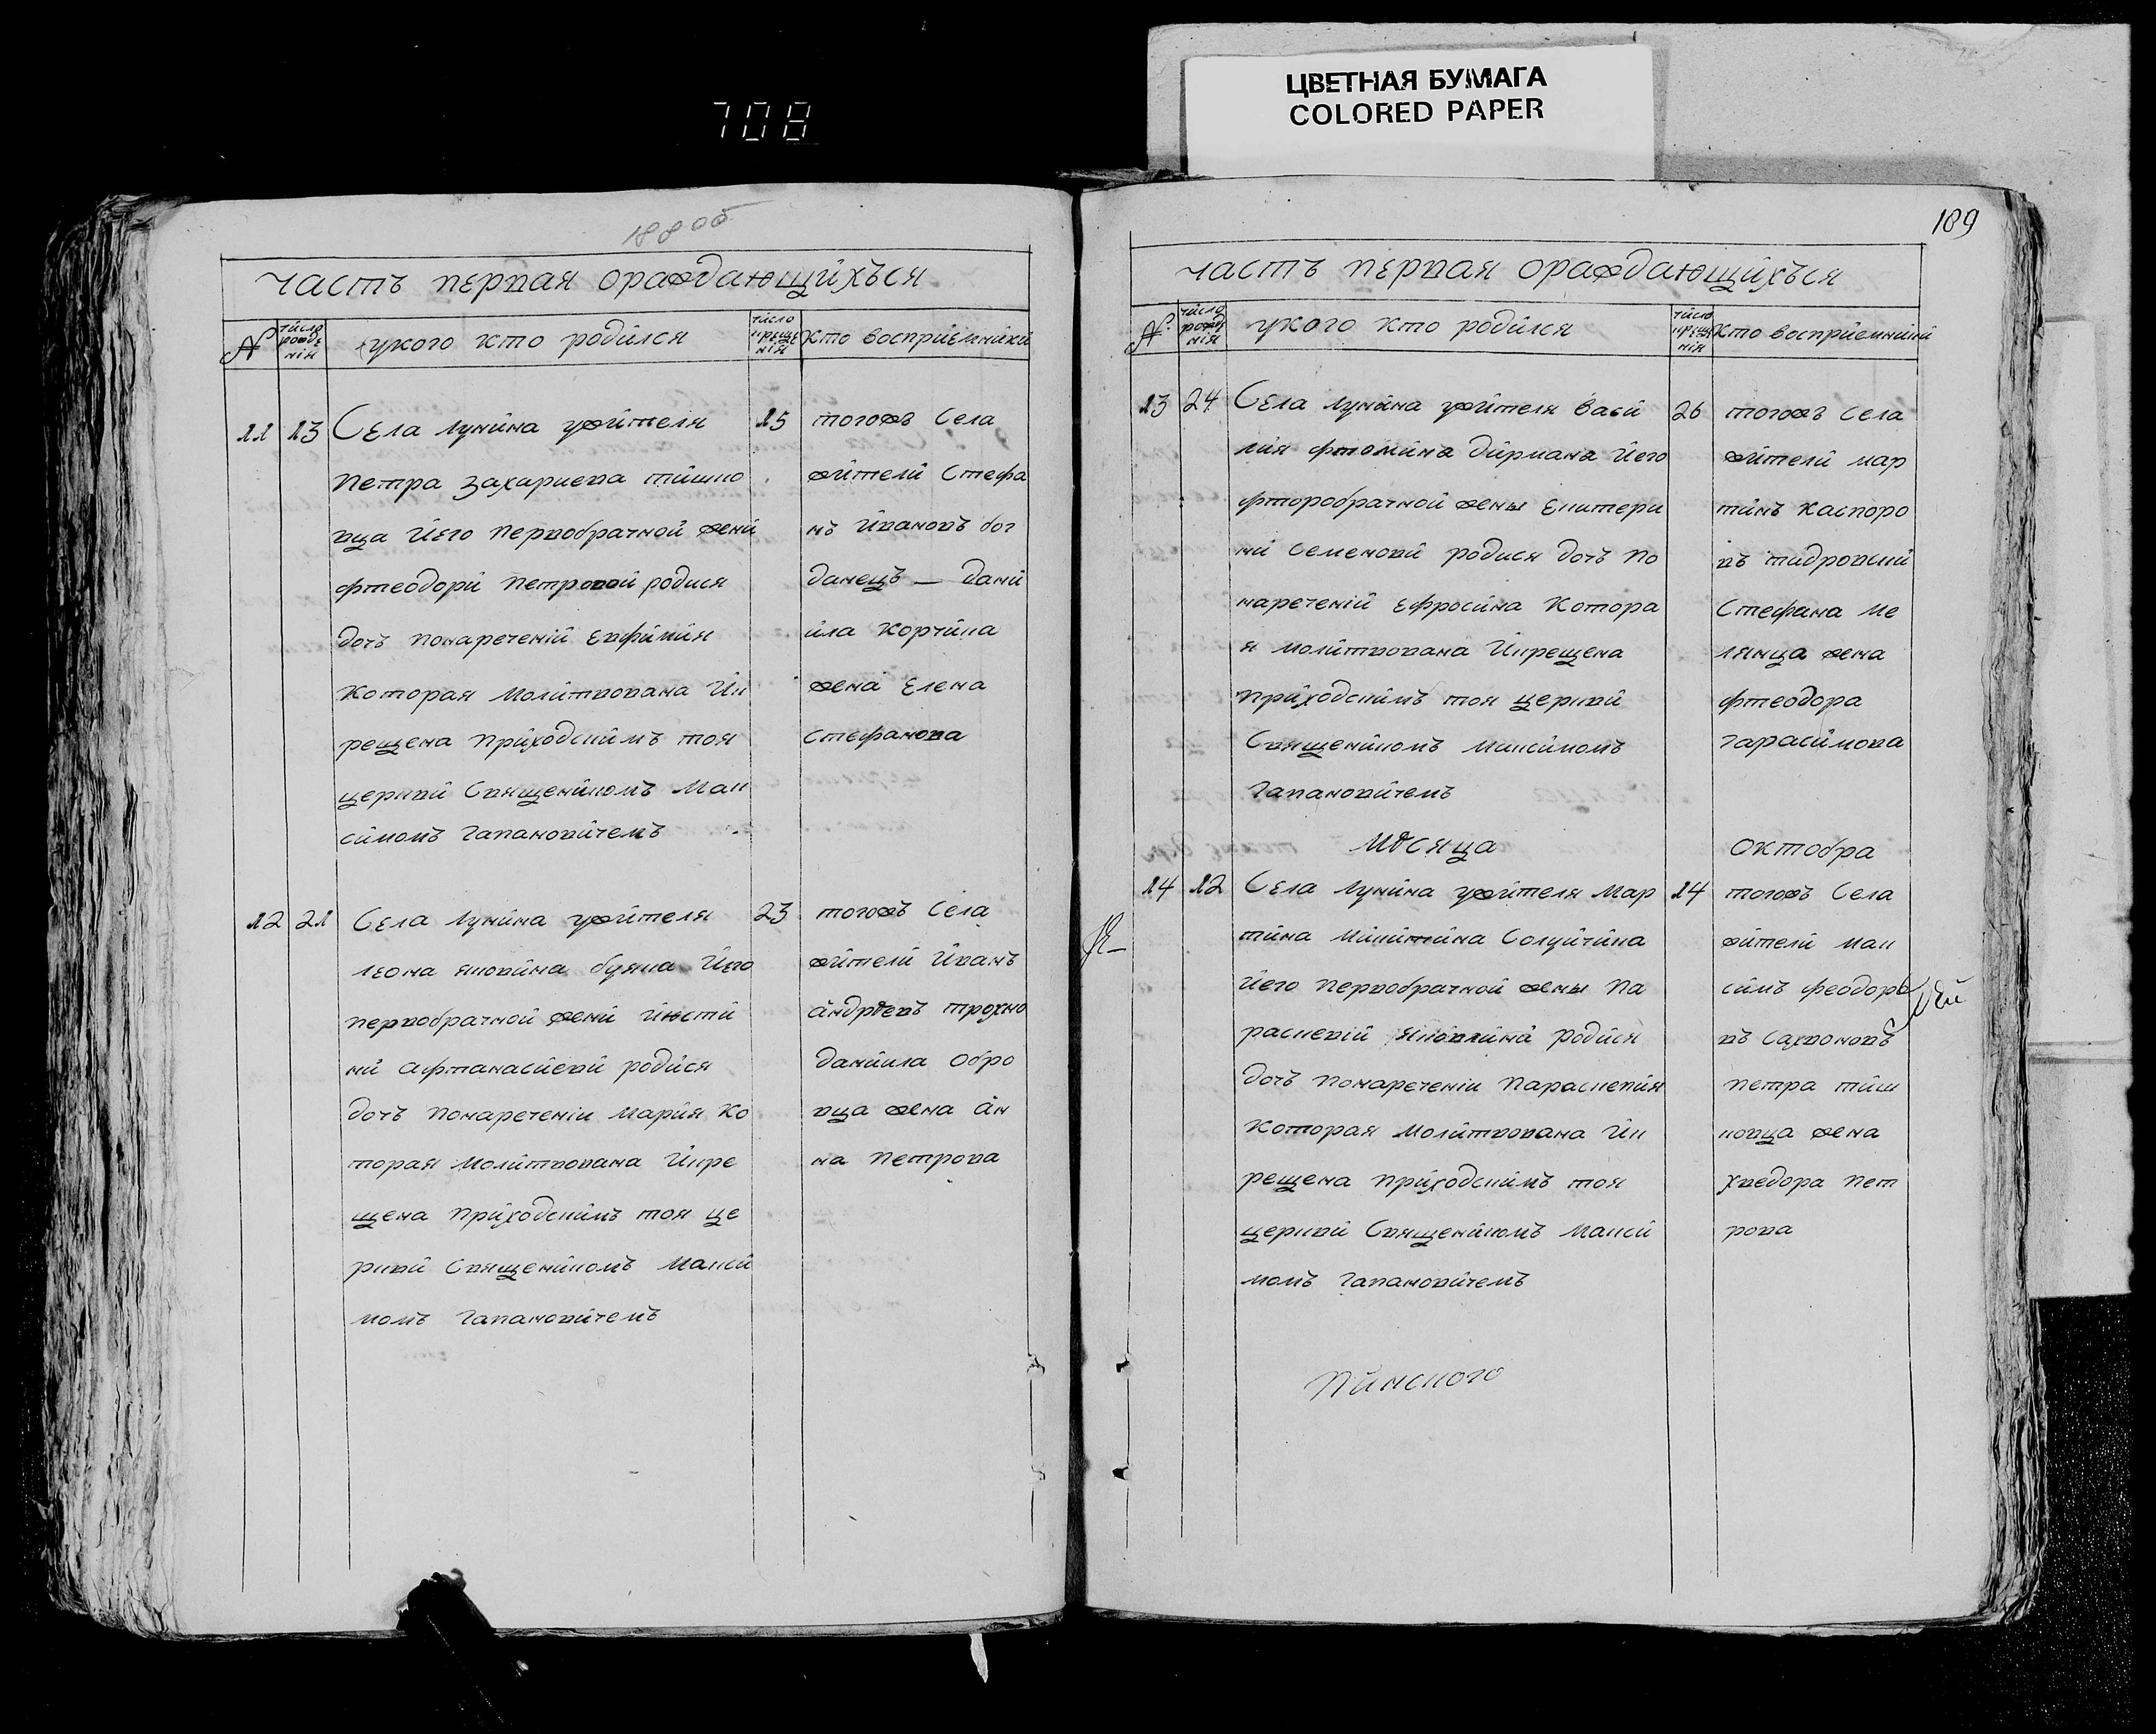 708
ЦВЕТНАЯ БУМАГА
COLORED PAPER
188 об
часть первая ораждающийхъся
№
число рожде нія
укого кто родился
число креще нія
кто восприемники
11 13 Села лунина ужителя
петра захариева тишко
вца його первобрачной жени
фтеодори петровой родися
дочъ понаречений евфимия
которая молитвована ик
рещена приходскимъ тоя
церкви Священикомъ Мак
симомъ гапановичемъ
15 тогожъ Села
жители Стефа
нъ ивановъ бог
данецъ — дани
ила корчика
жена елена
стефанова
12 21 Села лунина ужителя
леона яковина буяка його
первобрачной жени июсти
ни афтанасиеви родися
дочъ понаречении мария ко
торая молитвована икре
щена приходскимъ тоя це
ркви священикомъ макси
момъ гапановичемъ
23 тогожъ села
жители иванъ
андрѣевъ трохно
даниила обро
вца жена ан
на петрова
189
часть первая ораждающийхъся
№
число рожд нія
укого кто родился
число креще нія
кто восприемники
13 24 Села лунина ужителя васи
лия фтомина дирмана його
фторобрачной жены екатери
ни семенови родися дочъ по
наречений ефросина котора
я молитвована икрещена
приходскимъ тоя церкви
Священикомъ максимомъ
гапановичемъ
26 тогожъ села
жители мар
тинъ каспоро
въ
Стефана ме
лянца жена
фтеодора
гарасимова
Мѣсяца октобра
14 12 Села лунина ужителя мар
тина микитина
його первобрачной жены па
раскевий яковлина родися
дочъ понаречении параскевия
которая молитвована ик
рещена приходскимъ тоя
церкви Священикомъ макси
момъ гапановичемъ
14 тогожъ села
жители мак
симъ феодоро
въ сахвоновъ
петра тиш
ковца жена
хведора пет
рова
пинского